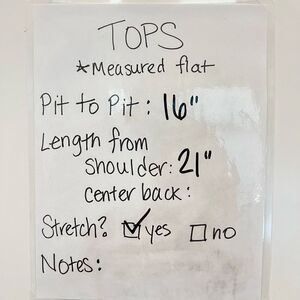 TOPS
*Measured flat
Pit to Pit: 16"
Length from
shoulder: 21"
center back:
Stretch? ☑ yes ☐ no
Notes: